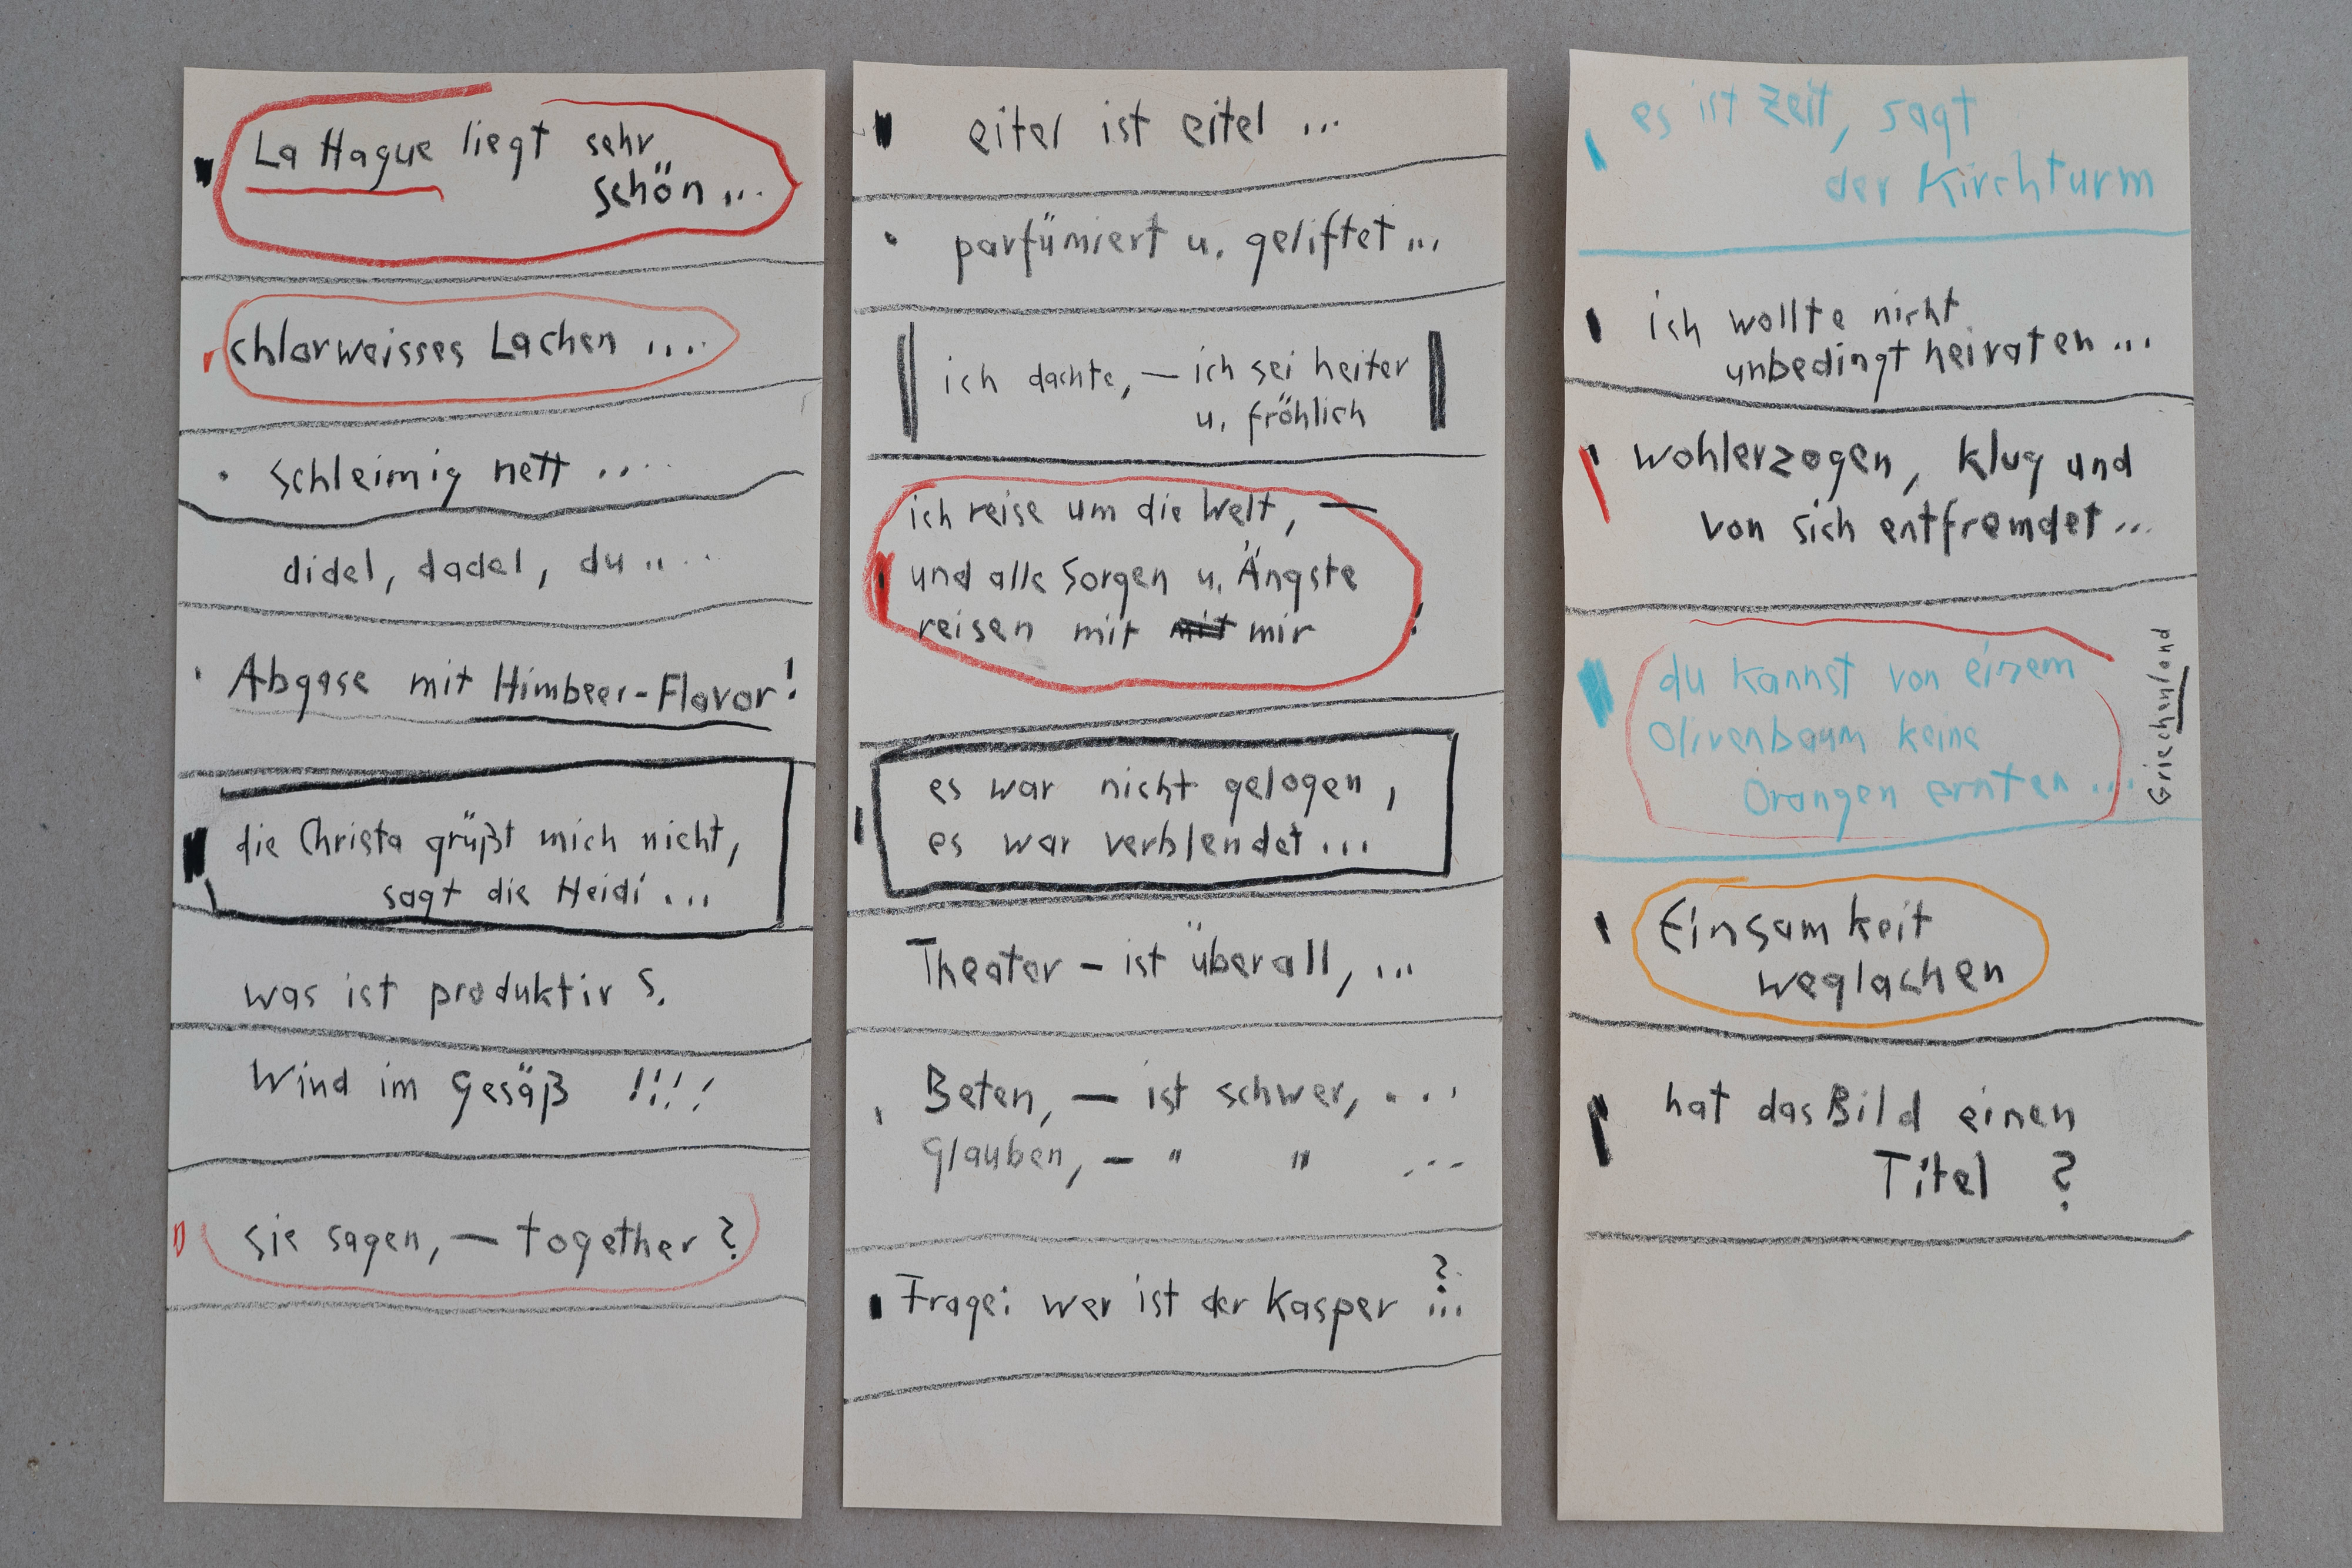 La Hague liegt sehr
schön...
chlorweisses Lachen ....
schleimig nett .....
didel, dadel, du ....
Abgase mit Himbeer-Flavor!
die Christa grüßt mich nicht,
sagt die Heidi ...
was ist produktiv ?
Wind im Gesäß !!!!
sie sagen, — together ?
eitel ist eitel ...
parfümiert u. geliftet ...
ich dachte, — ich sei heiter
u. fröhlich
ich reise um die Welt, —
und alle Sorgen u. Ängste
reisen mit mit mir !
es war nicht gelogen,
es war verblendet...
Theater - ist überall, ...
Beten, — ist schwer, ...
Glauben, — " " ...
Frage: wer ist der Kasper ?...
es ist Zeit, sagt
der Kirchturm
ich wollte nicht
unbedingt heiraten ...
wohlerzogen, klug und
von sich entfremdet ...
du kannst von einem
Olivenbaum keine
Orangen ernten ...
Griechenland
Einsamkeit
weglachen
hat das Bild einen
Titel ?